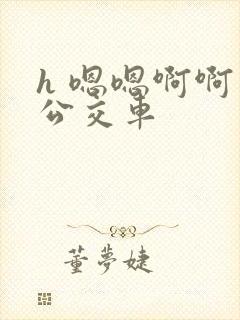 h 嗯嗯啊啊
公交車
董夢婕